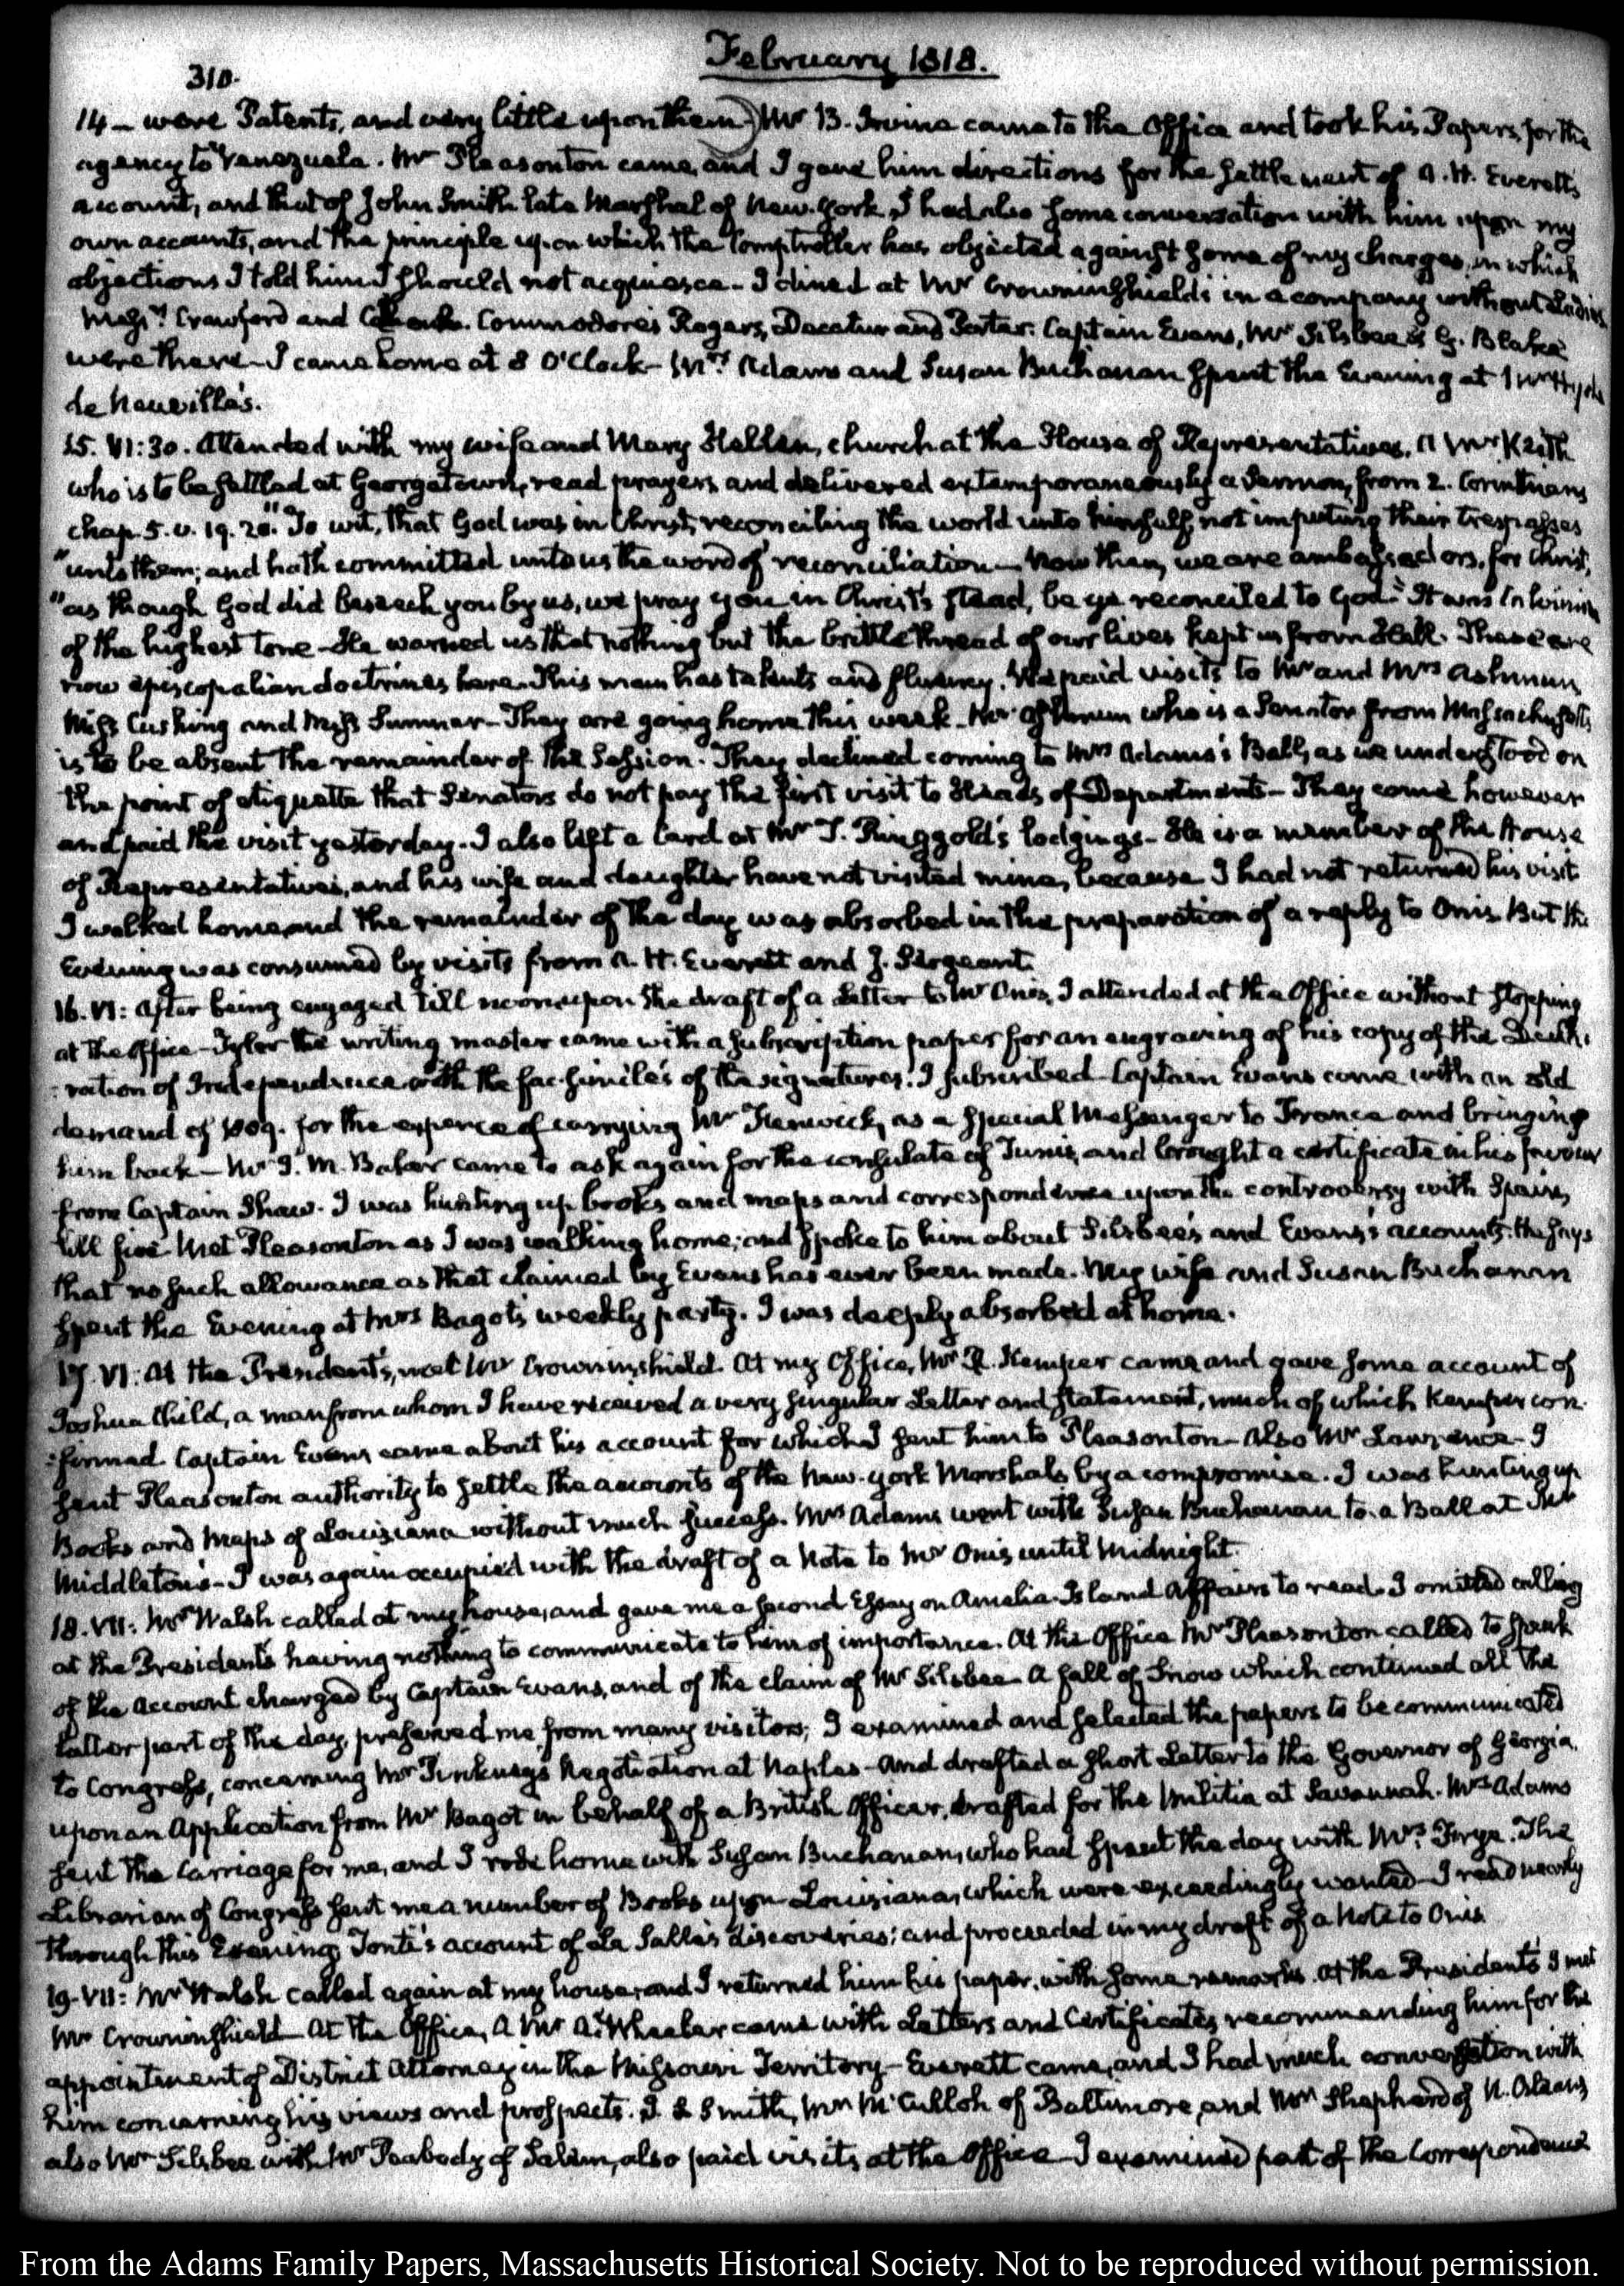 February 1818.
310.
14 — were Patents, and very little upon them. Mr B. Irvine came to the Office and took his Papers, for the
agency to Venezuela. Mr Pleasonton came, and I gave him directions for the settlement of A. H. Everett's
account, and that of John Smith late Marshal of New-York. I had also some conversation with him upon my
own accounts, and the principle upon which the Comptroller has objected against some of my charges, in which
objections I told him I should not acquiesce - I dined at Mr Crowninshield's in a company without Ladies.
Messrs Crawford and Commodores Rogers, Decatur and Porter. Captain Evans, Mr Silsbee & G. Blake
were there - I came home at 8 O'Clock - Mrs Adams and Susan Buchanan spent the Evening at Mrs Hyde
de Neuville's.
15. VI:30. Attended with my wife and Mary Hellen, church at the House of Representatives. A Mr Keith
who is to be settled at Georgetown, read prayers, and delivered extemporaneously a Sermon, from 2. Corinthians
chap. 5. v. 19. 20. "To wit, that God was in Christ, reconciling the world unto himself, not imputing their trespasses
"unto them; and hath committed unto us the word of reconciliation - Now then, we are ambassadors, for Christ,
"as though God did beseech you by us, we pray you in Christ's stead, be ye reconciled to God." It was Calvinism
of the highest tone - He warned us that nothing but the brittle thread of our lives kept us from Hell. These are
now episcopalian doctrines here. This man has talents and fluency. We paid visits to Mr and Mrs Ashmun,
Miss Cushing and Miss Sumner - They are going home this week - Mr Ashmun who is a Senator from Massachusetts
is to be absent the remainder of the Session. They declined coming to Mrs Adams's Ball, as we understood on
the point of etiquette that Senators do not pay the first visit to Heads of Departments - They came however
and paid the visit yesterday. I also left a Card at Mr T. Ringgold's lodgings - He is a member of the House
of Representatives, and his wife and daughter have not visited mine, because I had not returned his visit.
I walked home, and the remainder of the day was absorbed in the preparation of a reply to Onis. But the
Evening was consumed by visits from A. H. Everett and J. Sergeant.
16. VI: After being engaged till noon upon the draft of a Letter to Mr Onis, I attended at the Office without stopping
at the Office - Tyler the writing master came with a subscription paper for an engraving of his copy of the Decla:
:ration of Independence with the fac-simile's of the signatures. I subscribed - Captain Evans came with an old
demand of 1809. for the expence of carrying Mr Fenwick, as a special Messenger to France and bringing
him back - Mr J. M. Baker came to ask again for the consulate of Tunis, and brought a certificate in his favour
from Captain Shaw. I was hunting up books and maps and correspondence upon the controversy with Spain,
till five. Met Pleasonton as I was walking home; and spoke to him about Silsbee's and Evans's accounts. He says
that no such allowance as that claimed by Evans has ever been made. My wife and Susan Buchanan
spent the Evening at Mrs Bagot's weekly party. I was deeply absorbed at home.
17. VI: At the President's, met Mr Crowninshield. At my Office, Mr R. Kemper came, and gave some account of
Joshua Child, a man from whom I have received a very singular Letter and statement, much of which Kemper con:
:firmed. Captain Evans came about his account for which I sent him to Pleasonton - Also Mr Lawrence - I
sent Pleasonton authority to settle the accounts of the New-York Marshals by a compromise. I was hunting up
Books and Maps of Louisiana without much success. Mrs Adams went with Susan Buchanan to a Ball at Mr
Middleton's - I was again occupied with the draft of a Note to Mr Onis until Midnight.
18. VII: Mr Walsh called at my house, and gave me a second Essay on Amelia-Island Affairs to read. I omitted calling
at the President's having nothing to communicate to him of importance. At the Office Mr Pleasonton called to speak
of the Account charged by Captain Evans, and of the claim of Mr Silsbee - A fall of Snow which continued all the
latter part of the day, preserved me from many visitors; I examined and selected the papers to be communicated
to Congress, concerning Mr Pinkney's Negotiation at Naples - And drafted a short Letter to the Governor of Georgia,
upon an Application from Mr Bagot in behalf of a British Officer, drafted for the Militia at Savannah. Mrs Adams
sent the Carriage for me, and I rode home with Susan Buchanan, who had spent the day with Mrs Frye. The
Librarian of Congress sent me a number of Books upon Louisiana, which were exceedingly wanted - I read nearly
through this Evening, Tonti's account of La Salle's discoveries; and proceeded in my draft of a Note to Onis.
19. VII: Mr Walsh called again at my house, and I returned him his paper, with some remarks. At the President's I met
Mr Crowninshield - At the Office, A Mr A. Wheeler came with Letters and Certificates, recommending him for the
appointment of District Attorney in the Missouri Territory - Everett came, and I had much conversation with
him concerning his views and prospects. J. S Smith, Mr McCulloh of Baltimore, and Mr Shepherd of N. Orleans
also Mr Silsbee with Mr Peabody of Salem, also paid visits at the Office - I examined part of the Correspondence
From the Adams Family Papers, Massachusetts Historical Society. Not to be reproduced without permission.